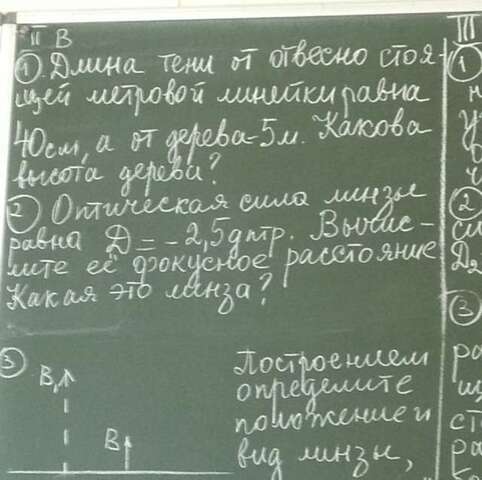 II В
① Длина тени от отвесно стоя-
щей метровой линейки равна
40см, а от дерева-5м. Какова
высота дерева?
② Оптическая сила линзы
равна D = -2,5дптр. Вычис-
лите её фокусное расстояние
Какая это линза?
③ Построением
определите
положение и
вид линзы,
B₁
B
III
①
②
D₂
③